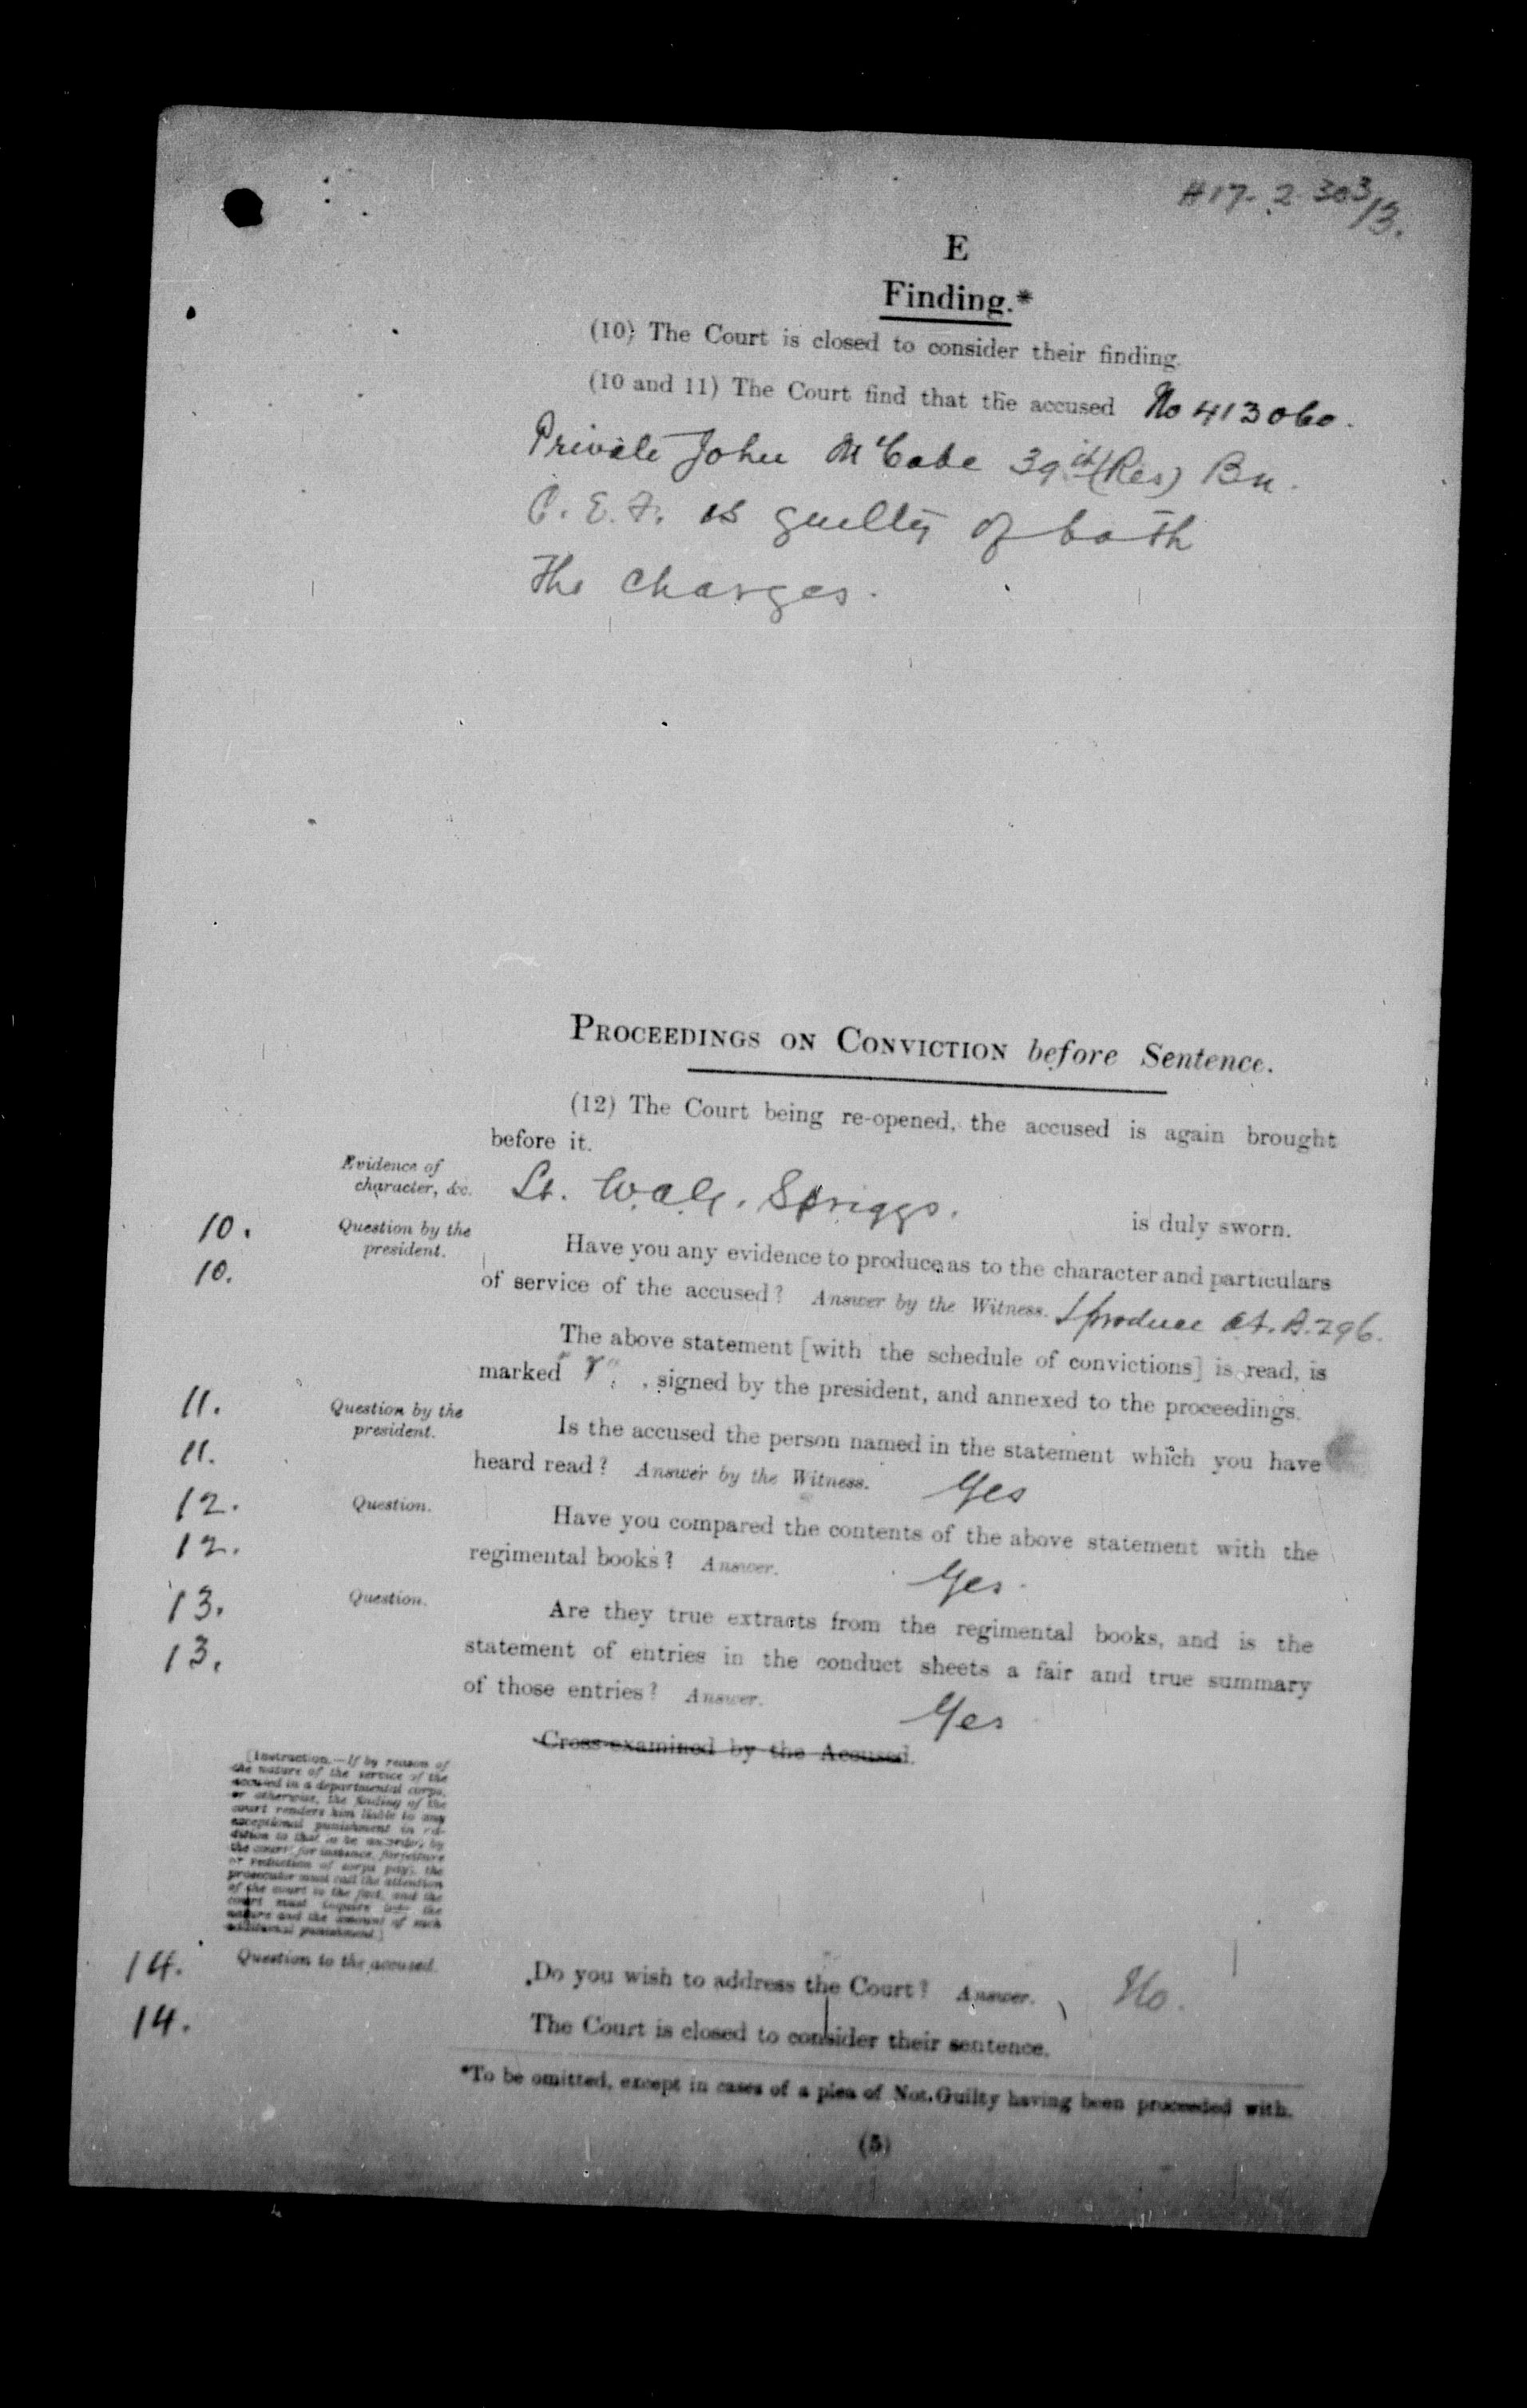 H17-2-303/3.
E
Finding.*
(10) The Court is closed to consider their finding.
(10 and 11) The Court find that the accused No 413060.
Private John McCabe 39th (Res) Bn.
C.E.F. is guilty of both
the charges.
PROCEEDINGS ON CONVICTION before Sentence.
(12) The Court being re-opened, the accused is again brought
before it.
Evidence of
character, &c.
Lt. W.A.G. Spriggs. is duly sworn.
10. Question by the
president.
Have you any evidence to produce as to the character and particulars
10. of service of the accused? Answer by the Witness. I produce at. B.296.
The above statement [with the schedule of convictions] is read, is
marked , signed by the president, and annexed to the proceedings.
11. Question by the
president.
Is the accused the person named in the statement which you have
11. heard read? Answer by the Witness. Yes
12. Question. Have you compared the contents of the above statement with the
12. regimental books? Answer. Yes.
13. Question. Are they true extracts from the regimental books, and is the
13. statement of entries in the conduct sheets a fair and true summary
of those entries? Answer. Yes
Cross-examined by the Accused.
[Instruction.—If by reason of
the nature of the service of the
accused in a departmental corps,
or otherwise, the finding of the
court renders him liable to any
exceptional punishment in ad-
dition to that to be awarded by
the court (for instance, forfeiture
or reduction of corps pay), the
prosecutor must call the attention
of the court to the fact, and the
court must inquire into the
nature and the amount of such
additional punishment.]
14. Question to the accused. Do you wish to address the Court? Answer. No.
14. The Court is closed to consider their sentence.
*To be omitted, except in cases of a plea of Not Guilty having been proceeded with.
(5)